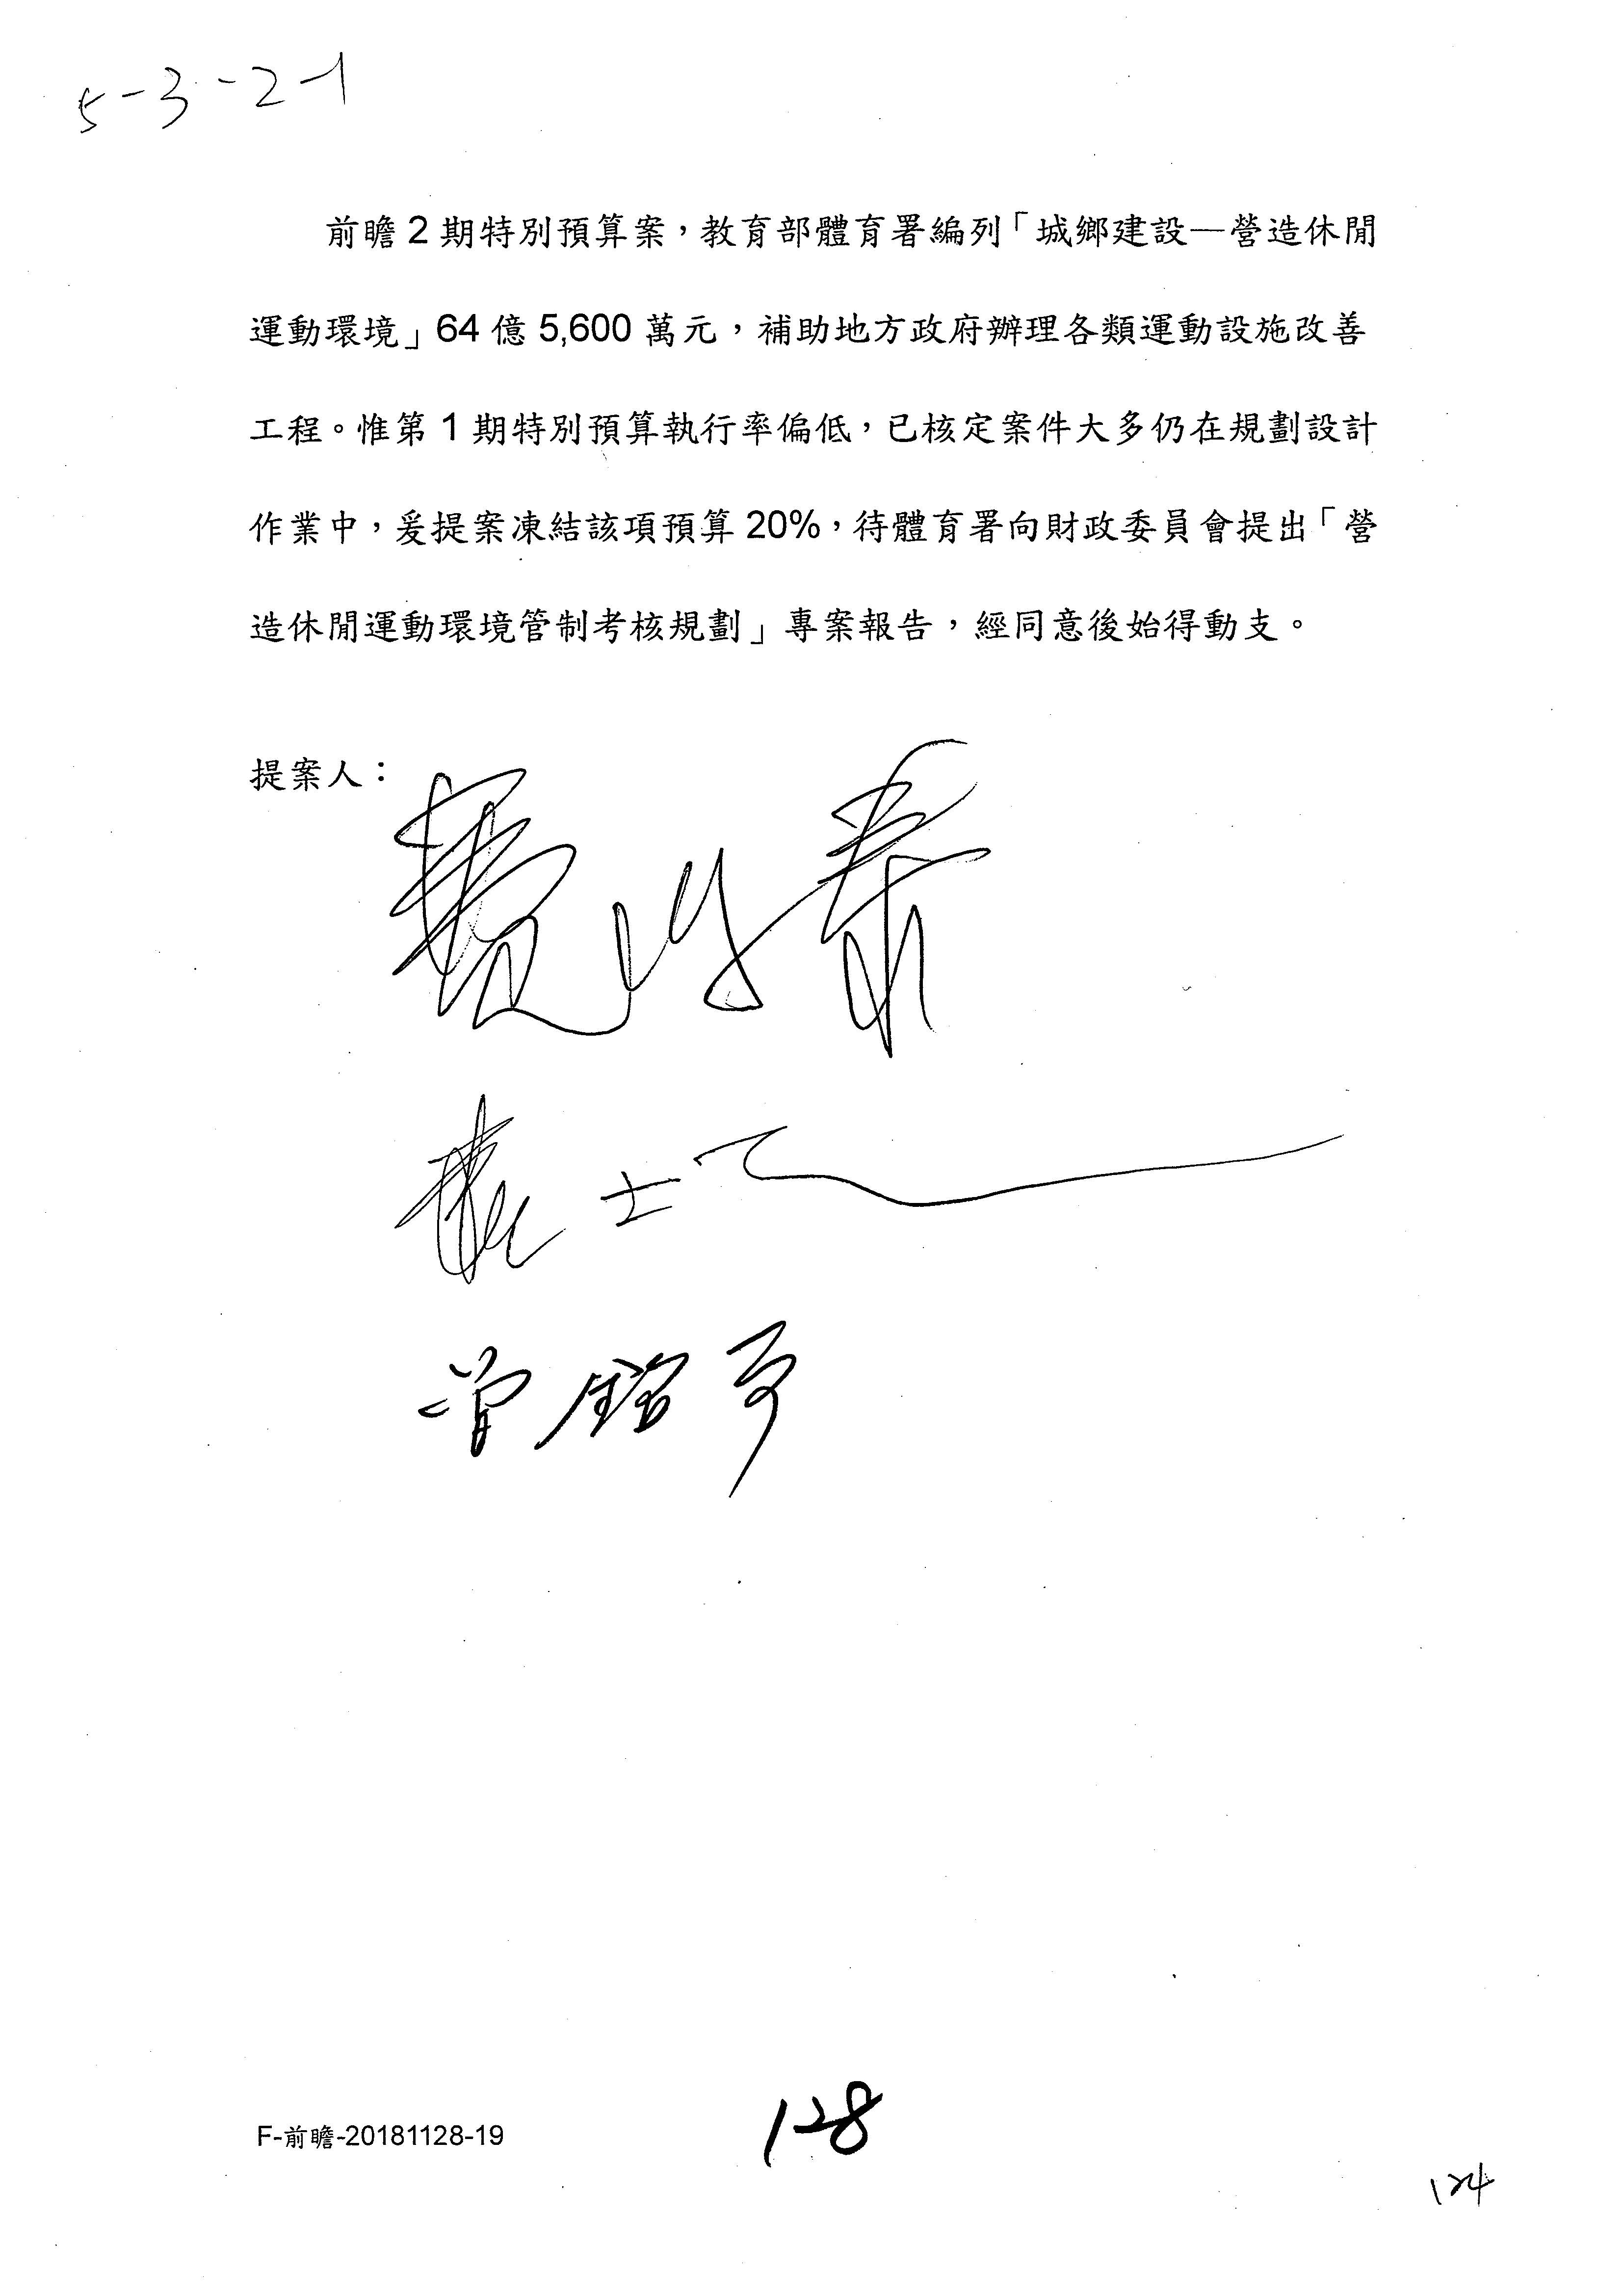 5-3-2-1
前瞻2期特別預算案，教育部體育署編列「城鄉建設—營造休閒
運動環境」64億5,600萬元，補助地方政府辦理各類運動設施改善
工程。惟第1期特別預算執行率偏低，已核定案件大多仍在規劃設計
作業中，爰提案凍結該項預算20%，待體育署向財政委員會提出「營
造休閒運動環境管制考核規劃」專案報告，經同意後始得動支。
提案人：
費鴻泰
曾銘宗
F-前瞻-20181128-19
128
124